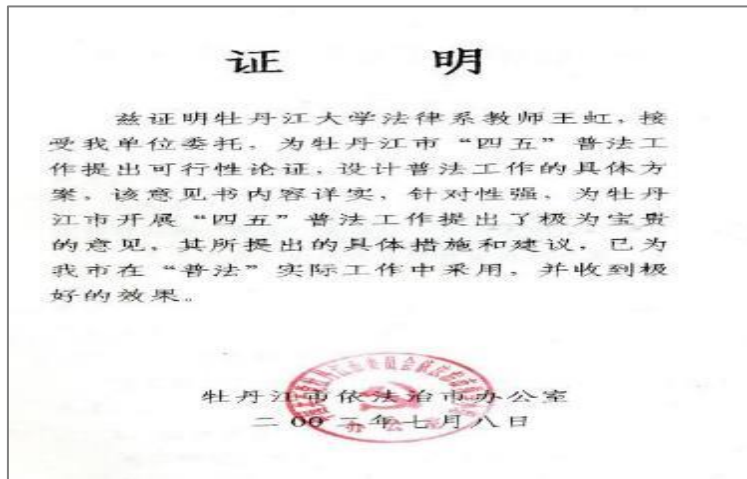 证 明
兹证明牡丹江大学法律系教师王虹，接
受我单位委托，为牡丹江市“四五”普法工
作提出可行性论证，设计普法工作的具体方
案。该意见书内容详实，针对性强，为牡丹
江市开展“四五”普法工作提出了极为宝贵
的意见。其所提出的具体措施和建议，已为
我市在“普法”实际工作中采用，并收到极
好的效果。
牡丹江市依法治市办公室
二00二年七月八日
办公室